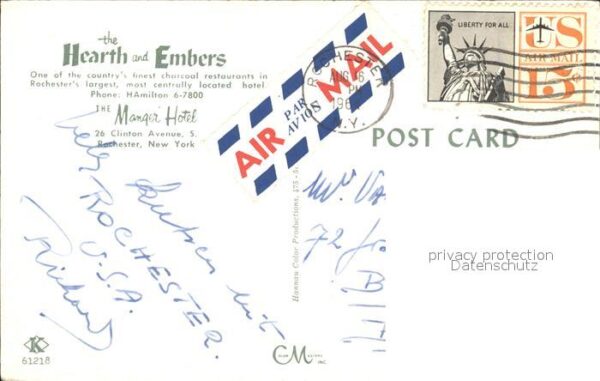 the
Hearth and Embers
One of the country's finest charcoal restaurants in
Rochester's largest, most centrally located hotel.
Phone: HAmilton 6-7800
THE
Manger Hotel
26 Clinton Avenue, S.
Rochester, New York
PAR
AVION
AIR MAIL
ROCHESTER
AUG
PM
N.Y.
LIBERTY FOR ALL
US
AIR MAIL
15¢
POST CARD
mit
ROCHESTER.
U.S.A.
Richard
72
Hannau Color Productions,
privacy protection
Datenschutz
K
61218
CM
INC.